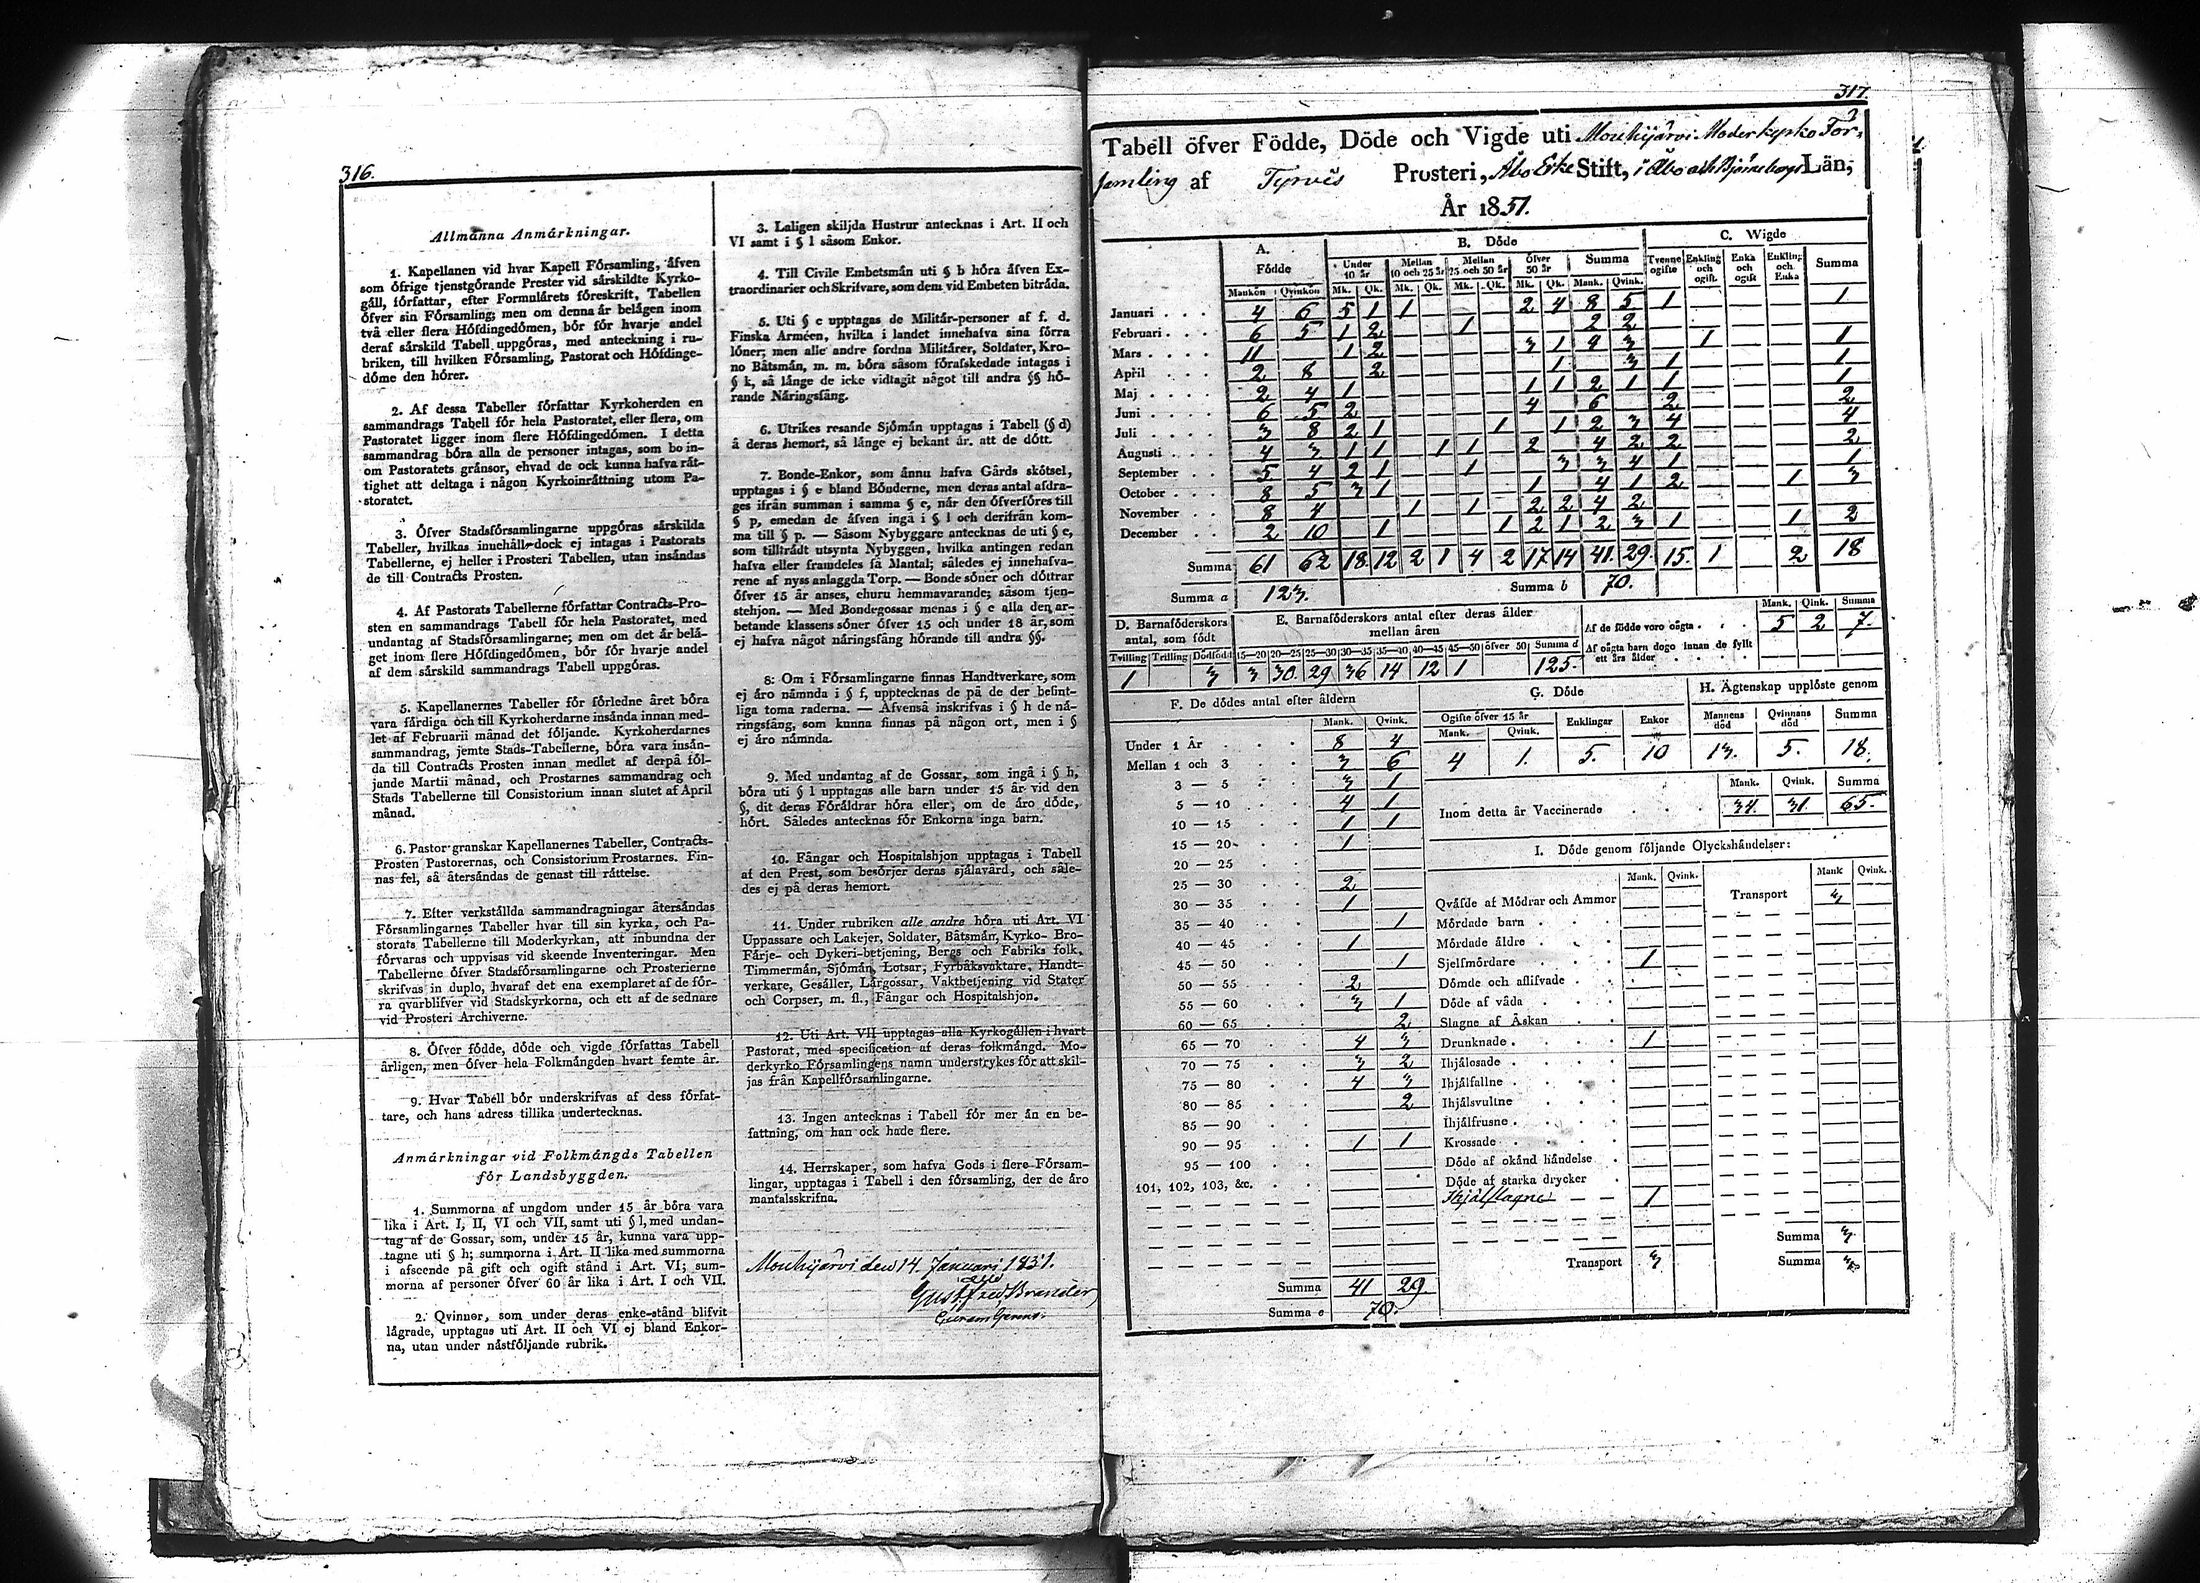 316.
Allmänna Anmärkningar.
1. Kapellanen vid hvar Kapell Församling, äfven
som öfrige tjenstgörande Prester vid särskildte Kyrko-
gäll, författar, efter Formulärets föreskrift, Tabellen
öfver sin Församling; men om denna är belägen inom
två eller flera Höfdingedömen, bör för hvarje andel
deraf särskild Tabell uppgöras, med anteckning i ru-
briken, till hvilken Församling, Pastorat och Höfdinge-
döme den hörer.
2. Af dessa Tabeller författar Kyrkoherden en
sammandrags Tabell för hela Pastoratet, eller flera, om
Pastoratet ligger inom flere Höfdingedömen. I detta
sammandrag böra alla de personer intagas, som bo in-
om Pastoratets gränsor, ehvad de ock kunna hafva rät-
tighet att deltaga i någon Kyrkoinrättning utom Pa-
storatet.
3. Öfver Stadsförsamlingarne uppgöras särskilda
Tabeller, hvilkas innehåll dock ej intagas i Pastorats
Tabellerne, ej heller i Prosteri Tabellen, utan insändas
de till Contracts Prosten.
4. Af Pastorats Tabellerne författar Contracts-Pro-
sten en sammandrags Tabell för hela Pastoratet, med
undantag af Stadsförsamlingarne; men om det är belä-
get inom flere Höfdingedömen, bör för hvarje andel
af dem särskild sammandrags Tabell uppgöras.
5. Kapellanernes Tabeller för förledne året böra
vara färdiga och till Kyrkoherdarne insända innan med-
let af Februarii månad det följande. Kyrkoherdarnes
sammandrag, jemte Stads-Tabellerne, böra vara insän-
da till Contracts Prosten innan medlet af derpå föl-
jande Martii månad, och Prostarnes sammandrag och
Stads Tabellerne till Consistorium innan slutet af April
månad.
6. Pastor granskar Kapellanernes Tabeller, Contracts-
Prosten Pastorernas, och Consistorium Prostarnes. Fin-
nas fel, så återsändas de genast till rättelse.
7. Efter verkställda sammandragningar återsändas
Församlingarnes Tabeller hvar till sin kyrka, och Pa-
storats Tabellerne till Moderkyrkan, att inbundna der
förvaras och uppvisas vid skeende Inventeringar. Men
Tabellerne öfver Stadsförsamlingarne och Prosterierne
skrifvas in duplo, hvaraf det ena exemplaret af de för-
ra qvarblifver vid Stadskyrkorna, och ett af de sednare
vid Prosteri Archiverne.
8. Öfver födde, döde och vigde författas Tabell
årligen, men öfver hela Folkmängden hvart femte år.
9. Hvar Tabell bör underskrifvas af dess förfat-
tare, och hans adress tillika undertecknas.
Anmärkningar vid Folkmängds Tabellen
för Landsbyggden.
1. Summorna af ungdom under 15 år böra vara
lika i Art. I, II, VI och VII, samt uti § l, med undan-
tag af de Gossar, som, under 15 år, kunna vara upp-
tagne uti § h; summorna i Art. II lika med summorna
i afseende på gift och ogift stånd i Art. VI; sum-
morna af personer öfver 60 år lika i Art. I och VII.
2. Qvinnor, som under deras enke-stånd blifvit
lägrade, upptagas uti Art. II och VI ej bland Enkor-
na, utan under nästföljande rubrik.
3. Laligen skiljda Hustrur antecknas i Art. II och
VI samt i § l såsom Enkor.
4. Till Civile Embetsmän uti § b höra äfven Ex-
traordinarier och Skrifvare, som dem vid Embeten biträda.
5. Uti § c upptagas de Militär-personer af f. d.
Finska Arméen, hvilka i landet innehafva sina förra
löner; men alle andre fordna Militärer, Soldater, Kro-
no Båtsmän, m. m. böra såsom förafskedade intagas i
§ k, så länge de icke vidtagit något till andra §§ hö-
rande Näringsfång.
6. Utrikes resande Sjömän upptagas i Tabell (§ d)
å deras hemort, så länge ej bekant är, att de dött.
7. Bonde-Enkor, som ännu hafva Gårds skötsel,
upptagas i § e bland Bönderne, men deras antal afdra-
ges ifrån summan i samma § e, när den öfverföres till
§ p, emedan de äfven ingå i § l och derifrån kom-
ma till § p. — Såsom Nybyggare antecknas de uti § e,
som tillträdt utsynta Nybyggen, hvilka antingen redan
hafva eller framdeles få Mantal; således ej innehafva-
rene af nyss anlaggda Torp. — Bonde söner och döttrar
öfver 15 år anses, ehuru hemmavarande; såsom tjen-
stehjon. — Med Bondegossar menas i § e alla den ar-
betande klassens söner öfver 15 och under 18 år, som
ej hafva något näringsfång hörande till andra §§.
8. Om i Församlingarne finnas Handtverkare, som
ej äro nämnda i § f, upptecknas de på de der befint-
liga toma raderna. — Äfvenså inskrifvas i § h de nä-
ringsfång, som kunna finnas på någon ort, men i §
ej äro nämnda.
9. Med undantag af de Gossar, som ingå i § h,
böra uti § l upptagas alle barn under 15 år vid den
§, dit deras Föräldrar höra eller, om de äro döde,
hört. Således antecknas för Enkorna inga barn.
10. Fångar och Hospitalshjon upptagas i Tabell
af den Prest, som besörjer deras själavård, och såle-
des ej på deras hemort.
11. Under rubriken alle andre höra uti Art. VI
Uppassare och Lakejer, Soldater, Båtsmän, Kyrko- Bro-
Färje- och Dykeri-betjening, Bergs och Fabriks folk,
Timmermän, Sjömän, Lotsar, Fyrbåksvaktare, Handt-
verkare, Gesäller, Lärgossar, Vaktbetjening vid Stater
och Corpser, m. fl., Fångar och Hospitalshjon.
12. Uti Art. VII upptagas alla Kyrkogällen i hvart
Pastorat, med specification af deras folkmängd. Mo-
derkyrko Församlingens namn understrykes för att skil-
jas från Kapellförsamlingarne.
13. Ingen antecknas i Tabell för mer än en be-
fattning, om han ock hade flere.
14. Herrskaper, som hafva Gods i flere Försam-
lingar, upptagas i Tabell i den församling, der de äro
mantalsskrifna.
Mouhijärvi den 14 Januari 1851.
Gust. Fred. Brander
317.
Tabell öfver Födde, Döde och Vigde uti Mouhijärvi Moderkyrko För-
samling af Tyrvis Prosteri, Åbo Erke Stift, i Åbo och Björneborgs Län,
År 1851.
A. Födde B. Döde C. Wigde
Under 10 år Mellan 10 och 25 år Mellan 25 och 50 år Öfver 50 år Summa Tvenne ogifte Enkling och ogift. Enka och ogift Enkling och Enka Summa
Mankön Qvinkön Mk. Qk. Mk. Qk. Mk. Qk. Mk. Qk. Mank. Qvink.
Januari . . . 4 6 5 1 1 2 4 8 5 1 1
Februari . . . 6 5 1 2 1 2 2
Mars . . . . 11 1 2 3 1 4 3 1 1
April . . . 2 8 2 1 3 1 1
Maj . . . . 2 4 1 1 1 2 1 1 1
Juni . . . . 6 5 2 4 6 2 2
Juli . . . . 3 8 2 1 1 1 2 3 4 4
Augusti . . . 4 3 1 1 1 1 2 4 2 2 2
September . . 5 4 2 1 1 3 3 4 1 1
October . . . 8 5 3 1 1 4 1 2 1 3
November . . 8 4 1 1 2 2 4 2
December . . 2 10 1 1 2 1 2 3 1 1 2
Summa 61 62 18 12 2 1 4 2 17 14 41. 29. 15. 1 2 18
Summa a 123. Summa b 70.
D. Barnaföderskors antal, som födt
E. Barnaföderskors antal efter deras ålder mellan åren
Mank. Qink. Summa
Af de födde voro oägta . . . 5 2 7.
Af oägta barn dogo innan de fyllt ett års ålder
Tvilling Trilling Dödfödt 15—20 20—25 25—30 30—35 35—40 40—45 45—50 öfver 50 Summa d
1 3 3 30. 29 36 14 12 1 125.
F. De dödes antal efter åldern
Mank. Qvink.
Under 1 År 8 4
Mellan 1 och 3 3 6
3 — 5 3 1
5 — 10 4 1
10 — 15 1 1
15 — 20 1
20 — 25
25 — 30 2
30 — 35 1
35 — 40 1
40 — 45 1
45 — 50 1
50 — 55 2
55 — 60 3 1
60 — 65 2
65 — 70 4 3
70 — 75 3 2
75 — 80 4 3
80 — 85 2
85 — 90
90 — 95 1 1
95 — 100
101, 102, 103, &c.
Summa 41 29.
Summa e 70.
G. Döde
Ogifte öfver 15 år Enklingar Enkor
Mank. Qvink.
4 1. 5. 10
H. Ägtenskap upplöste genom
Mannens död Qvinnans död Summa
13. 5. 18.
Mank. Qvink. Summa
Inom detta år Vaccinerade 34. 31. 65.
I. Döde genom följande Olyckshändelser:
Mank. Qvink. Mank Qvink.
Qväfde af Mödrar och Ammor Transport 3
Mördade barn
Mördade äldre
Sjelfmördare 1
Dömde och aflifvade
Döde af våda
Slagne af Åskan
Drunknade 1
Ihjälosade
Ihjälfallne
Ihjälsvultne
Ihjälfrusne
Krossade
Döde af okänd händelse
Döde af starka drycker
Ihjälslagne 1
Summa 3.
Transport 3 Summa 3.